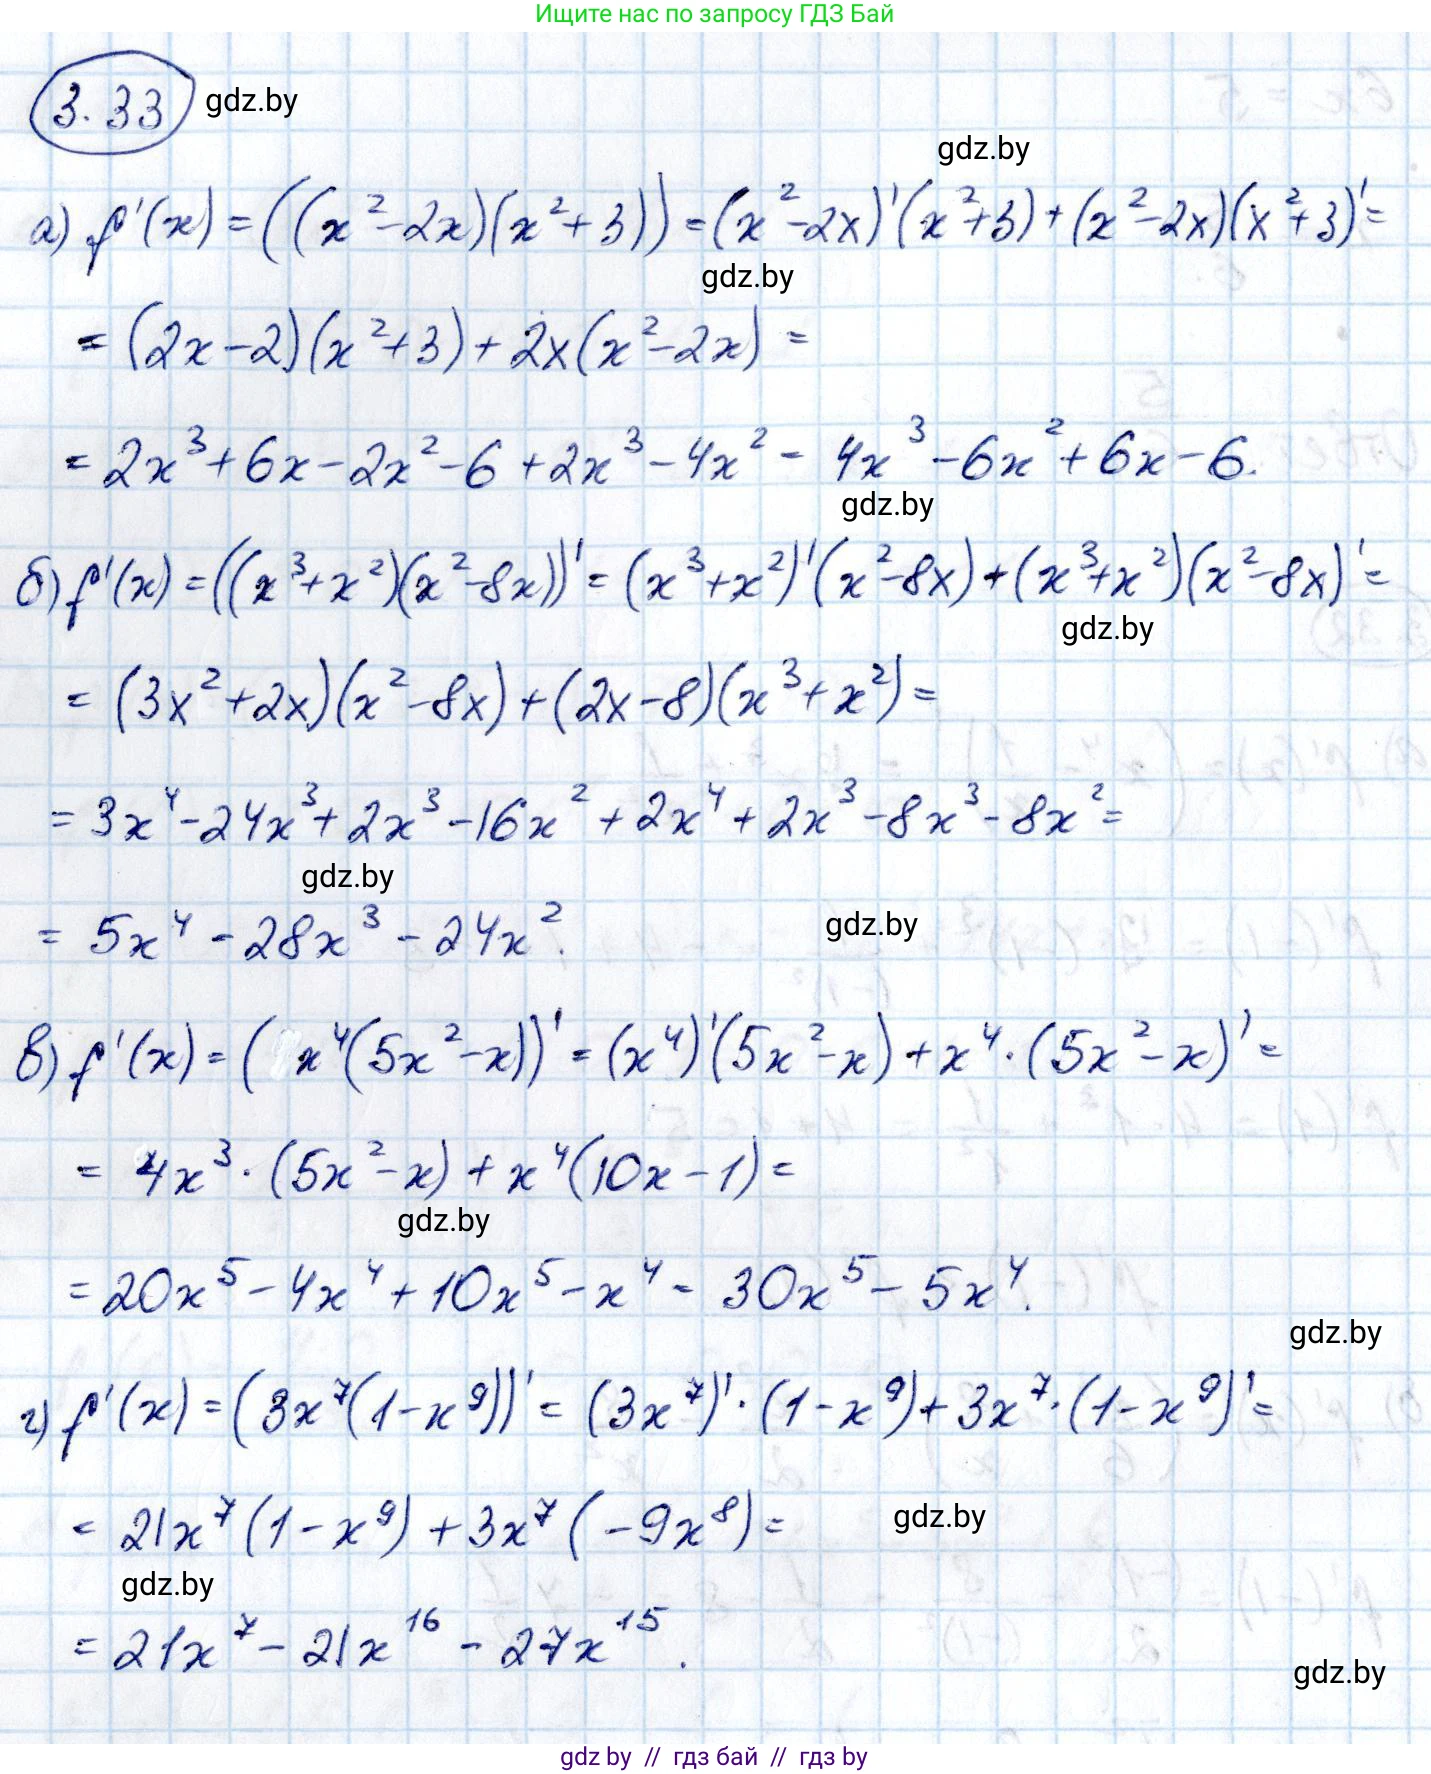 Ищите нас по запросу ГДЗ Бай
3.33 gdz.by
gdz.by
а) f'(x) = ((x²-2x)(x²+3)) = (x²-2x)'(x²+3) + (x²-2x)(x²+3)' =
gdz.by
= (2x-2)(x²+3) + 2x(x²-2x) =
= 2x³+6x-2x²-6+2x³-4x² = 4x³-6x²+6x-6.
gdz.by
б) f'(x) = ((x³+x²)(x²-8x))' = (x³+x²)'(x²-8x) + (x³+x²)(x²-8x)' =
gdz.by
= (3x²+2x)(x²-8x) + (2x-8)(x³+x²) =
= 3x⁴-24x³+2x³-16x²+2x⁴+2x³-8x³-8x² =
gdz.by
gdz.by
= 5x⁴-28x³-24x².
в) f'(x) = (x⁴(5x²-x))' = (x⁴)'(5x²-x) + x⁴·(5x²-x)' =
= 4x³·(5x²-x) + x⁴(10x-1) =
gdz.by
= 20x⁵-4x⁴+10x⁵-x⁴ = 30x⁵-5x⁴.
gdz.by
г) f'(x) = (3x⁷(1-x⁹))' = (3x⁷)'·(1-x⁹) + 3x⁷·(1-x⁹)' =
= 21x⁷(1-x⁹) + 3x⁷(-9x⁸) =
gdz.by
gdz.by
= 21x⁷-21x¹⁶-27x¹⁵.
gdz.by
gdz by // гдз бай // гдз by